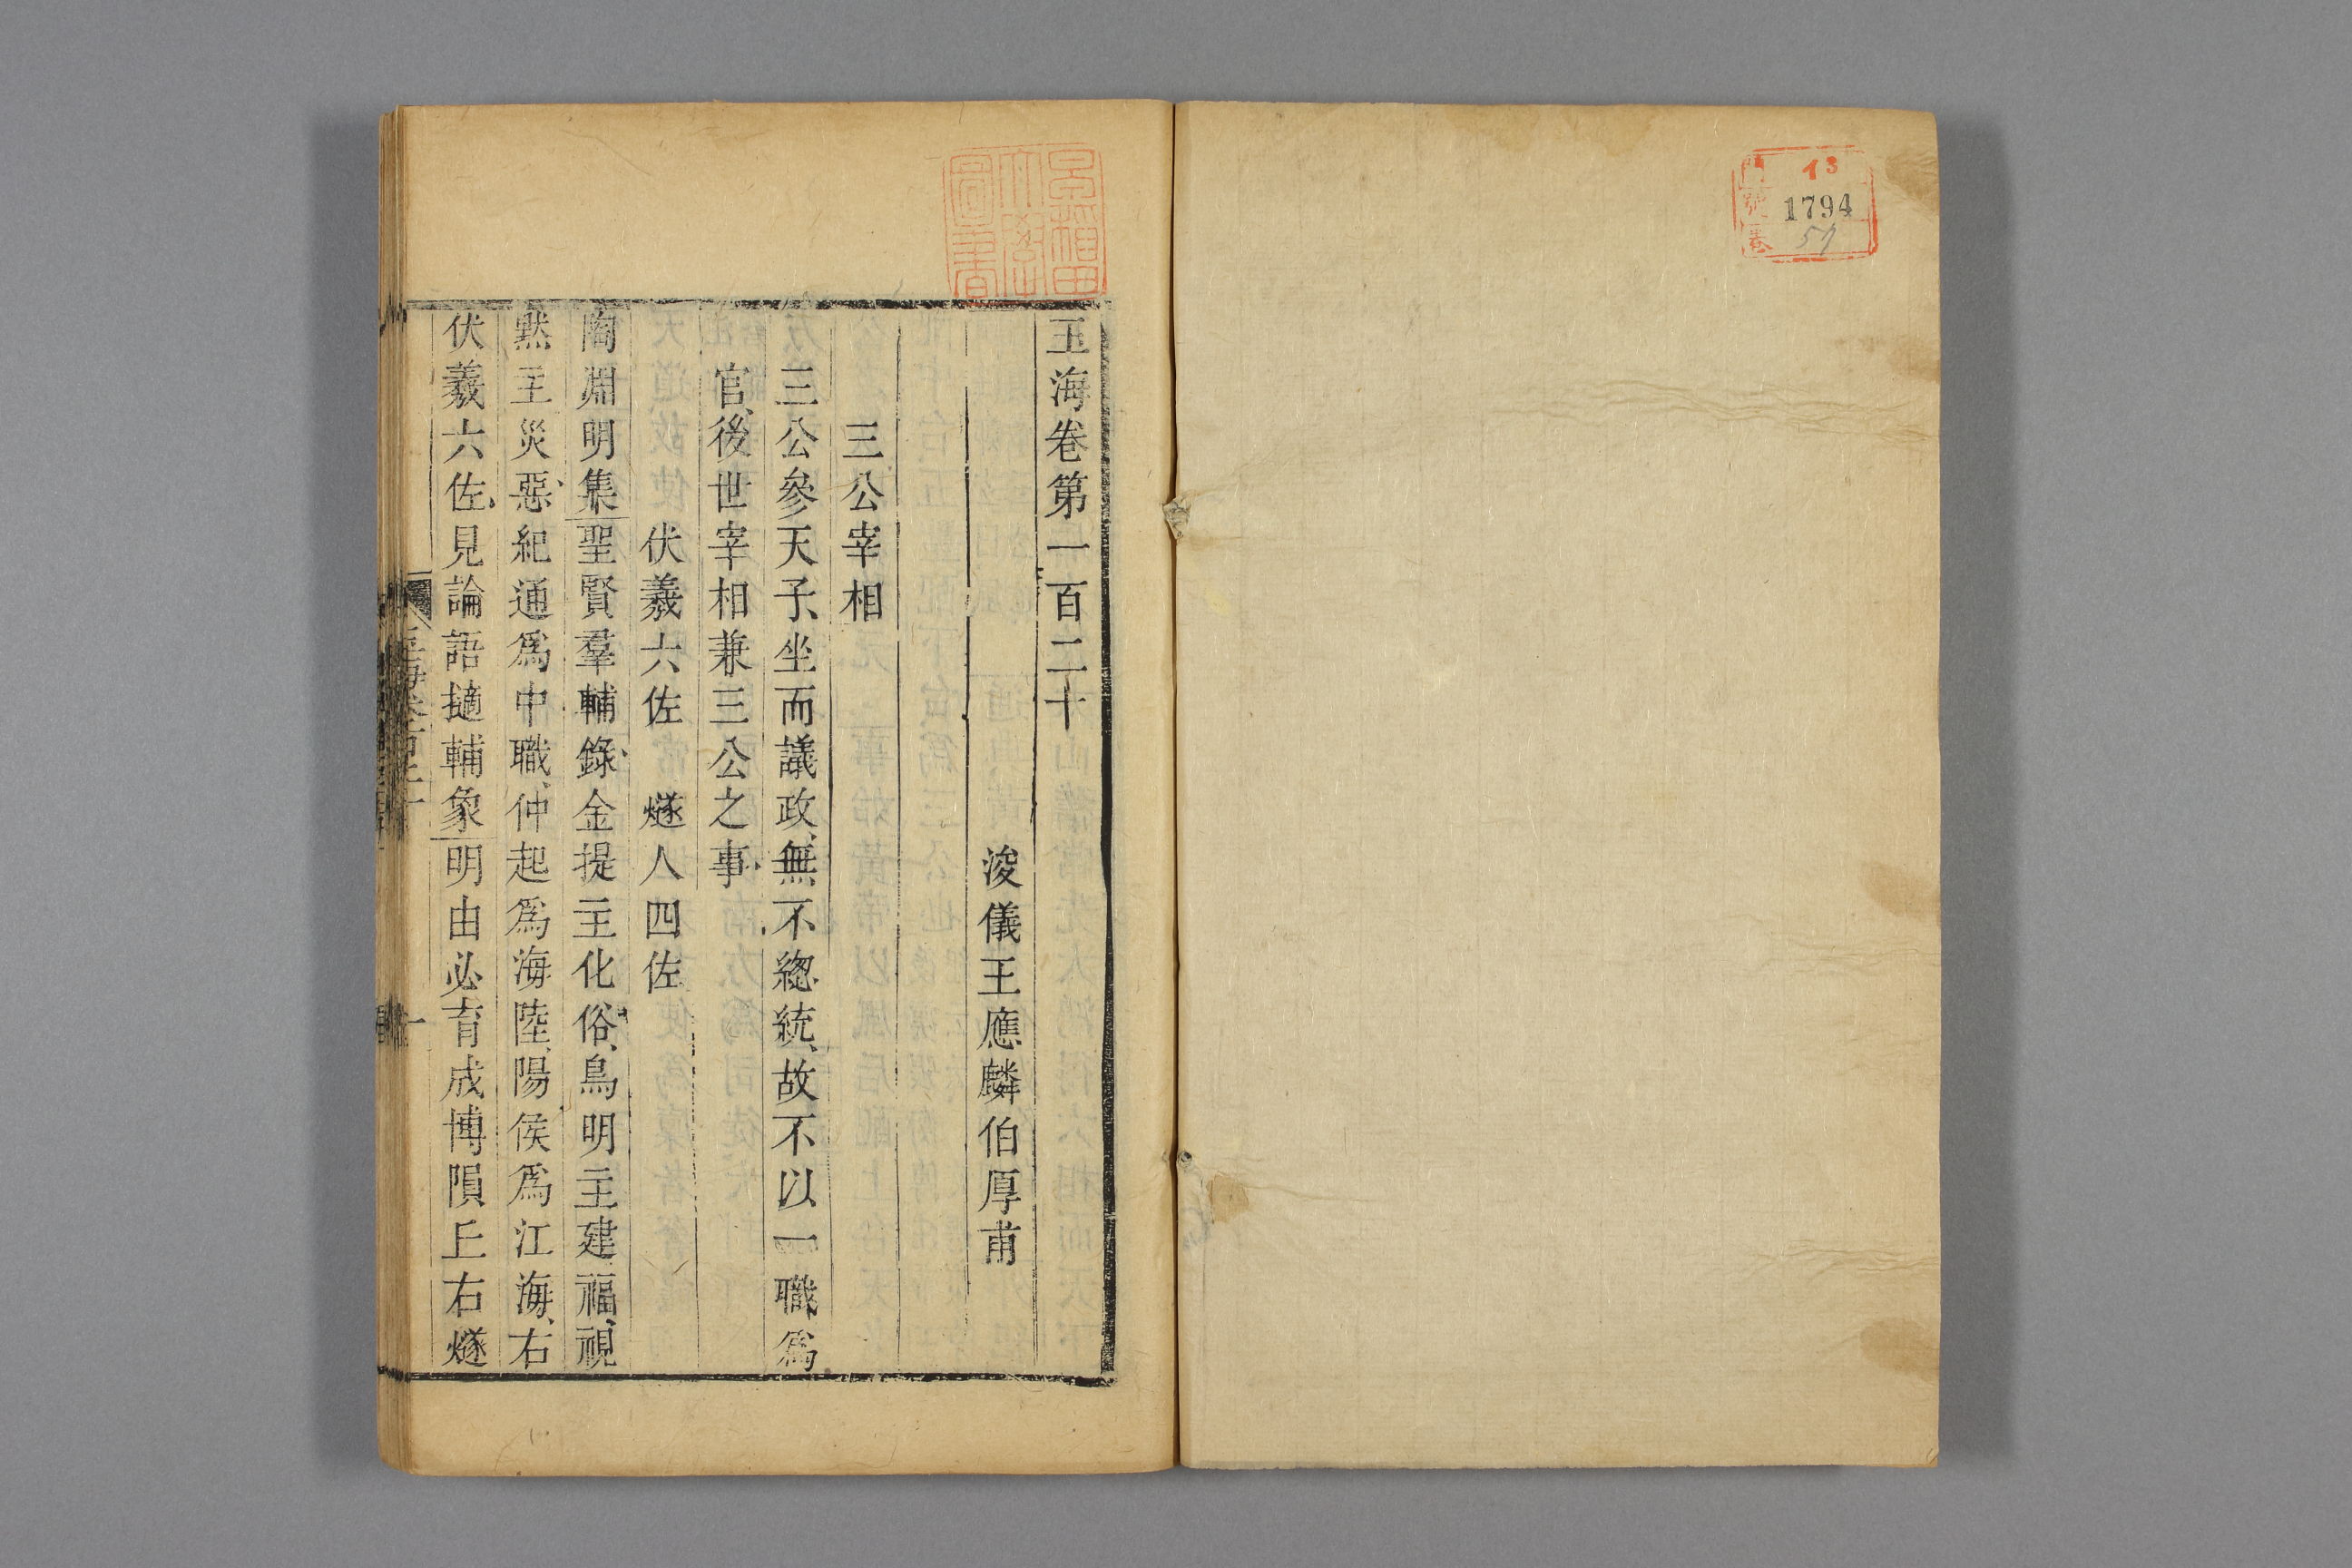 13
門
號 1794
卷 57
早稻田
大學
圖書
玉海卷第一百二十
浚儀王應麟伯厚甫
三公宰相
三公參天子、坐而議政、無不緫統、故不以一職爲
官、後世宰相兼三公之事、
伏羲六佐 燧人四佐
陶淵明集聖賢羣輔錄、金提主化俗、鳥明主建福、視
黙主災惡、紀通爲中職、仲起爲海陸、陽侯爲江海、右
伏羲六佐、見論語擿輔象明由必育成博隕丘右燧
一